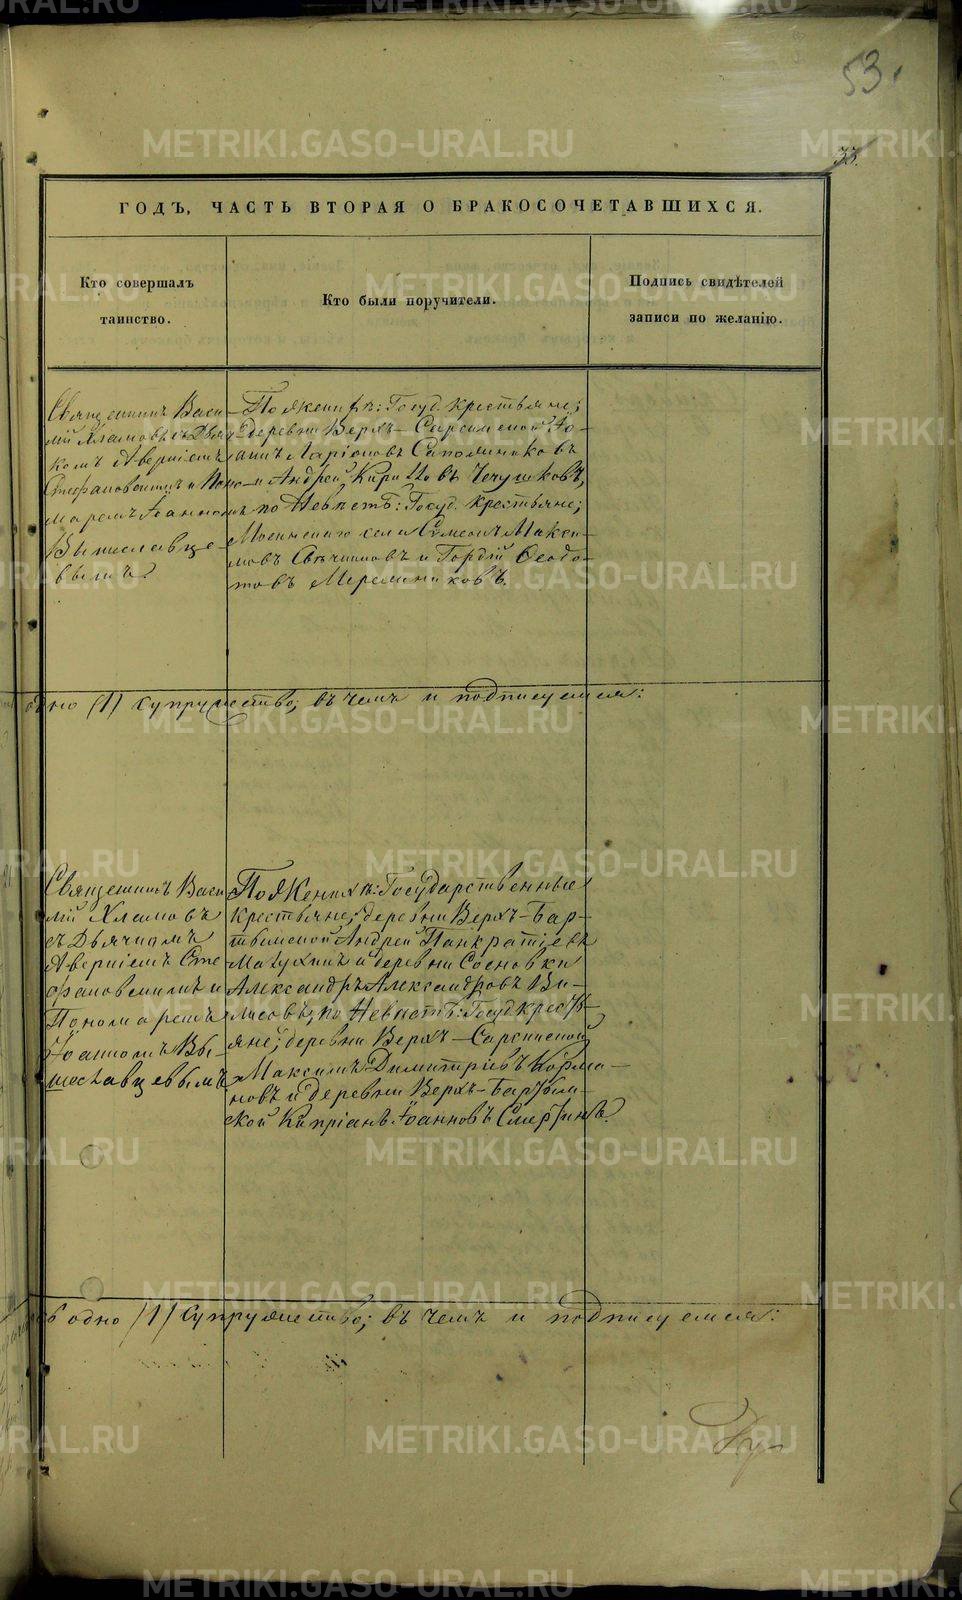 53.
33.
ГОДЪ, ЧАСТЬ ВТОРАЯ О БРАКОСОЧЕТАВШИХСЯ.
Кто совершалъ таинство.
Кто были поручители.
Подпись свидѣтелей записи по желанію.
Священникъ Васи-
лій Хламовъ съ Дьяч-
комъ Аверкіемъ
Стефановскимъ и Поно-
маремъ Іоанномъ
Вышеславце-
вымъ.
По Женихѣ: Госуд. крестьяне;
деревни Верхъ-Сарсинской Іо-
аннъ Ларіоновъ Сапожниковъ
и Андрей Кирилловъ Чечушковъ,
по Невѣстѣ: Госуд. крестьяне;
села Симеонъ Макси-
мовъ и Гордій Ѳеодо-
товъ Мерешниковъ.
одно (1) супружество; въ чемъ и подписуемся:
Священникъ Васи-
лій Хламовъ
съ Дьячкомъ
Аверкіемъ Сте
фановскимъ и
Пономаремъ
Іоанномъ Вы-
шеславцевымъ
По Женихѣ: Государственные
крестьяне; деревни Верхъ-Бар-
тымской Андрей Панкратіевъ
и деревни Сосновки
Александръ Александровъ Ви-
лисовъ; по Невѣстѣ: Госуд. кресть-
яне; деревни Верхъ-Сарсинской
Максимъ Димитріевъ Корма-
новъ и деревни Верхъ-Бартым-
ской Кипріанъ Іоанновъ Смертинъ.
одно (1) супружество; въ чемъ и подписуемся:
METRIKI.GASO-URAL.RU